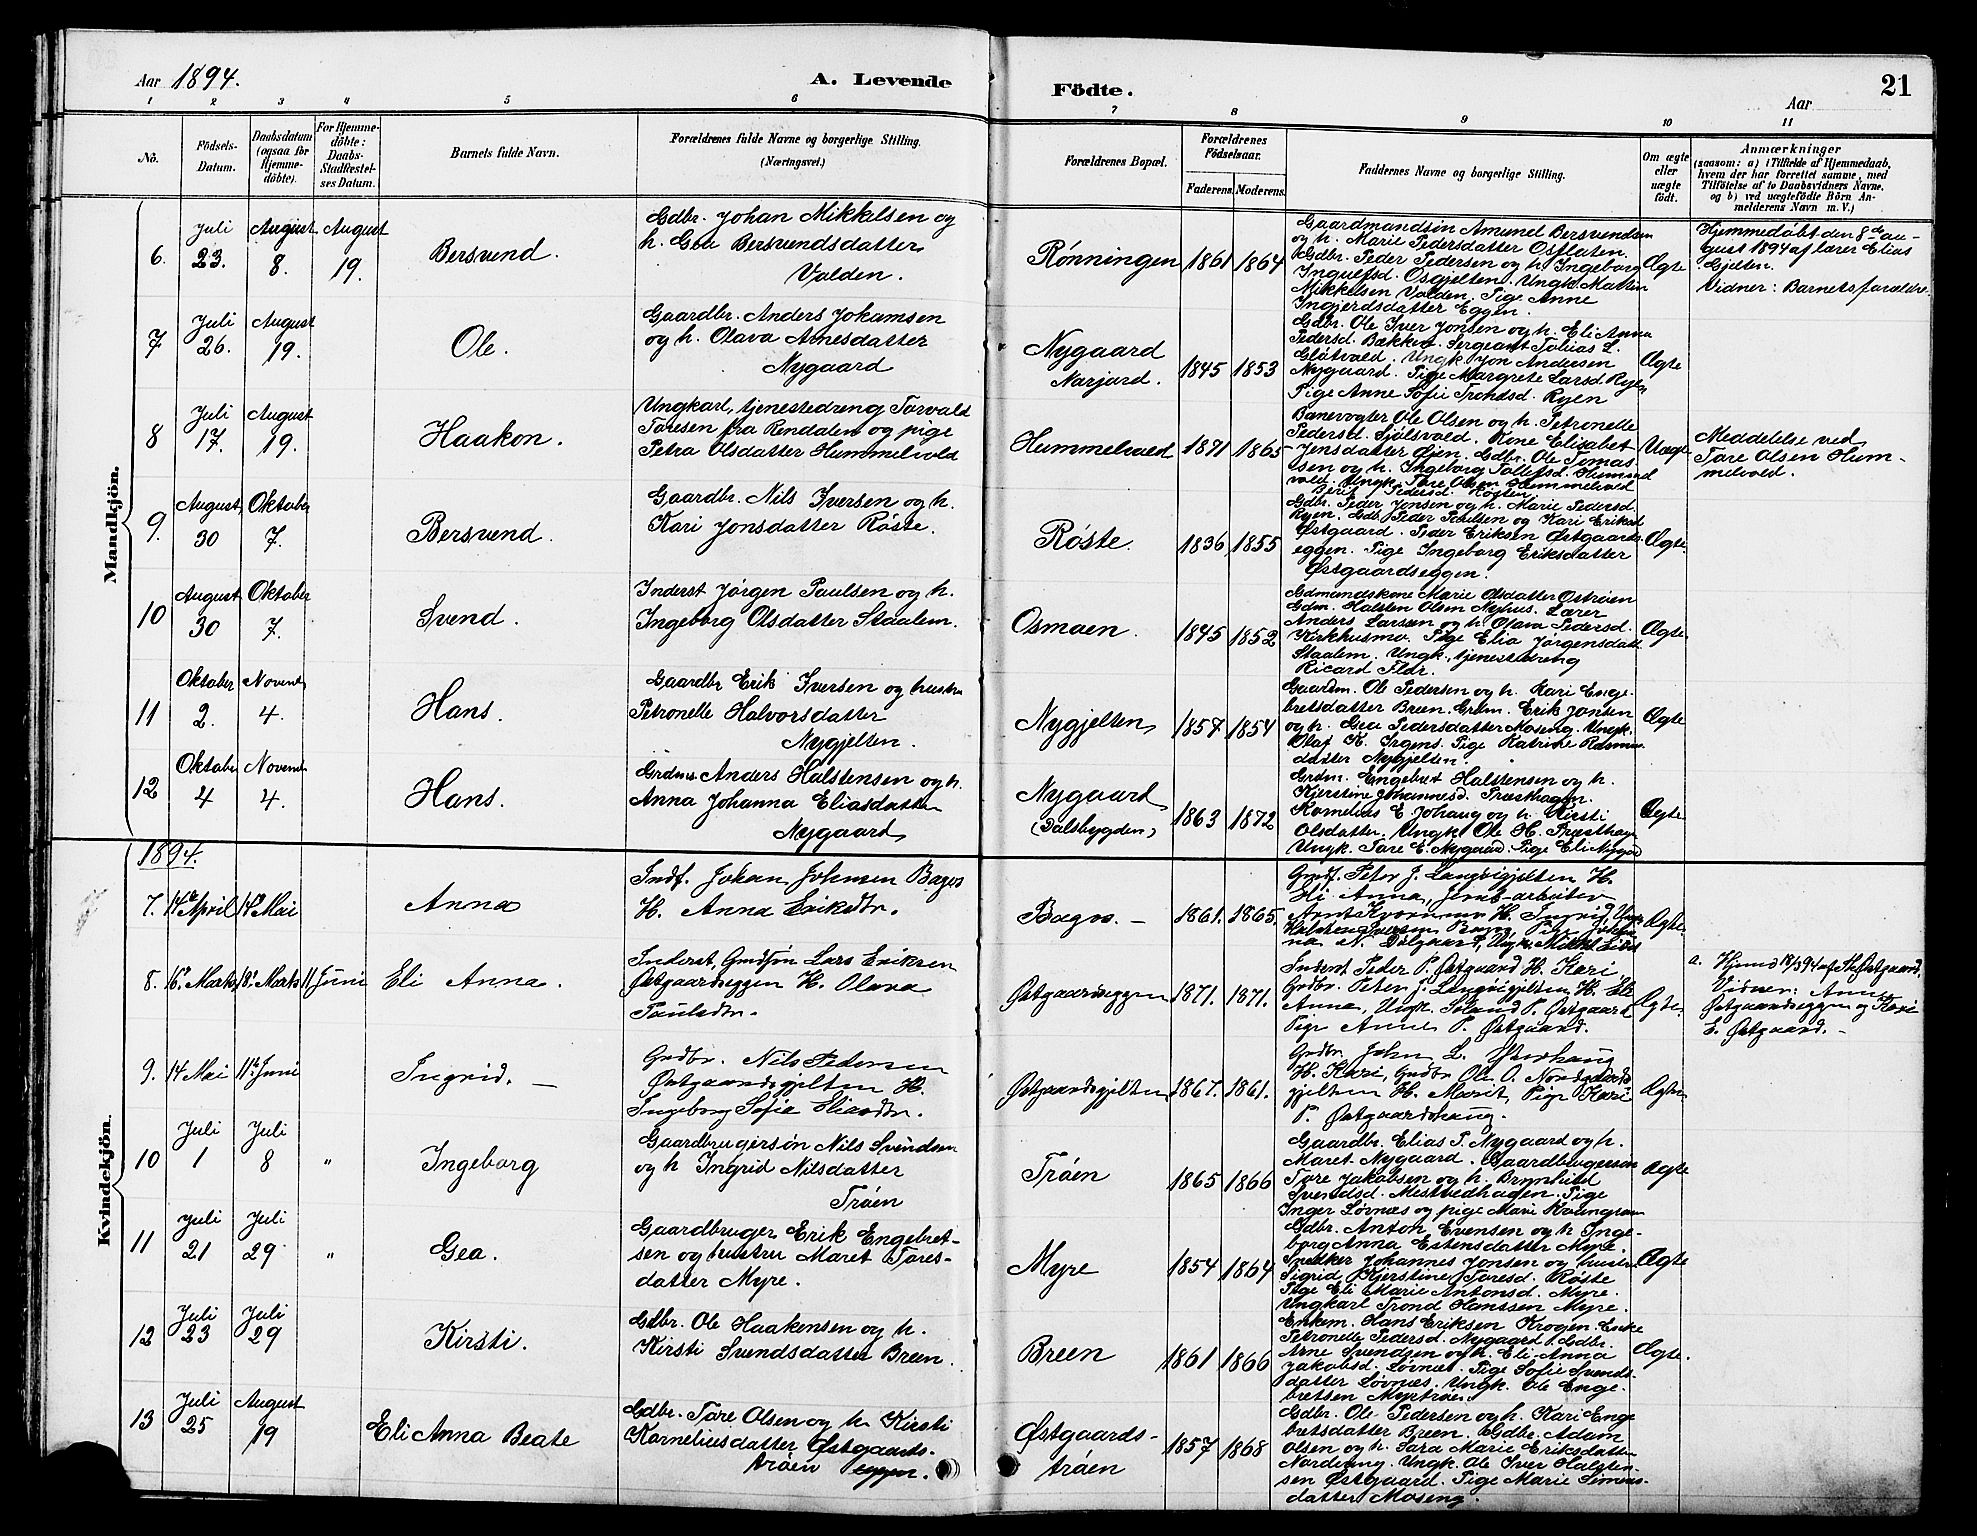 Aar 1894.
A. Levende
Födte.
Aar
21
1 2 3 4 5 6 7 8 9 10 11
No.
Födsels-
Datum.
Daabsdatum
(ogsaa for
Hjemme-
döbte).
For Hjemme-
döbte:
Daabs-
Stadfæstel-
ses Datum.
Barnets fulde Navn.
Forældrenes fulde Navne og borgerlige Stilling.
(Næringsvei.)
Forældrenes Bopæl.
Forældrenes
Födselsaar.
Faderens. Moderens.
Faddernes Navne og borgerlige Stilling.
Om ægte
eller
uægte
født.
Anmærkninger
(saasom: a) i Tilfælde af Hjemmedaab,
hvem der har forrettet samme, med
Tilföielse af to Daabsvidners Navne,
og b) ved uægtefödte Börn An-
melderens Navn m. V.)
Mandkjön.
6.
Juli
23.
August
8.
August
19.
Bersvend.
Gdbr. Johan Mikkelsen og
h. Goa Bersvendsdatter
Valden.
Rønningen
1861 1864
Gaardmandsøn Amund Bersvendsen
og h. Marie Pedersdatter Osflaten.
Gdbr. Peder Pedersen og h. Ingeborg
Mikkelsen Valden. Pige Anne
Ingjerdsdatter Eggen.
Ægte
Hjemmedøbt den 8de au-
gust 1894 af lærer Elias
Gjelten.
Vidner: Barnets forældre.
7
Juli
26.
August
19.
Ole.
Gaardbr. Anders Johansen
og h. Olava Arnesdatter
Nygaard
Nygaard
Narjord.
1845 1853
Gdbr. Ole Iver Jonsen og h. Eli Anna
Pedersd. Bækken. Sergeant Tobias L.
Glåtvold. Ungk. Jon Andersen
Nygaard. Pige Margrete Larsd Ryen
Pige Anne Sofie Trondsd. Ryen
Ægte
8
Juli
17.
August
19.
Haakon.
Ungkarl, tjenestedreng Torvald
Toresen fra Rendalen og pige
Petra Olsdatter Hummelvold
Hummelvold
1871 1865
Banevogter Ole Olsen og h. Petronelle
Pedersd. Sjölsvold. Kone Elisabet
Jensdatter Øien. Gdbr. Ole Tomas-
sen og h. Ingeborg Tollefsd. Hummel
vold. Ungk. Tore Olsen Hummelvold
Berit Pedersd. Røsten
Uægte
Meddelelse ved
Tore Olsen Hum-
melvold.
9.
August
30
Oktober
7.
Bersvend.
Gaardbr. Nils Iversen og h.
Kari Jonsdatter Røste.
Røste.
1836 1855
Gdbr. Peder Jonsen og h. Marie Pedersd.
Ryen. Gdb. Peder Paulsen og Kari Eriksd
Østgaard. Peder Eriksen Østgaards-
eggen. Pige Ingeborg Eriksdatter
Østgaardseggen.
Ægte
10
August
30
Oktober
7.
Svend.
Inderst Jørgen Paulsen og h.
Ingeborg Olsdatter Staalem.
Osmoen.
1845 1852
Gdmandskone Marie Olsdatter Østrøen
Gdm. Halsten Olsen Nyhus. Lærer
Anders Larsen og h. Olava Pedersd.
Kirkhusmo. Pige Elia Jørgensdatt
Staalem. Ungk., tjenestedreng
Ricard Flor.
Ægte
11
Oktober
2.
Novemb
4.
Hans.
Gaardbr Erik Iversen og hustru
Petronelle Halvorsdatter
Nygjelten.
Nygjelten
1857 1854
Gaardm. Ole Pedersen og h. Kari Enge-
bretsdatter Breen. Grdm. Erik Jonsen
og h. Gea Pedersdatter Moseng. Ungk.
Olaf K. Irgens. Pige Katrine Rasmus
datter Nygjelten.
Ægte
12
Oktober
4
Novemb
4.
Hans.
Grdm. Anders Halstensen og h.
Anna Johanna Eliasdatter
Nygaard
Nygaard
(Dalsbygden)
1863 1872
Grdm. Engebret Halstensen og h.
Kjerstine Johannesd. Præsthagen.
Kornelius E. Johaug og h. Kirsti
Olsdatter. Ungk. Ole H. Præsthage
Ungk. Tore E. Nygaard. Pige Eli Nygaard
Ægte
Kvindekjön.
1894.
7.
14de April
14de Mai
Anna
Indf. Johan Johnsen Bagvs
H. Anna Eriksdtr.
1861. 1865.
Grdf. Peter J. Langvigjelten H.
Eli Anna, Jernb-arbeider
Ægte.
8.
16de Marts
18de Marts
11 Juni
Eli Anna.
Inderst, Grdsøn Lars Eriksen
Østgaardseggen H. Olava
Paulsdtr.
Østgaardseggen
1871. 1871.
Inderst Peder P. Østgaard H. Kari,
Grdbr. Peter J. Langvigjelten H. Eli
Anna, Ungk. P. Østgaard
Pige Anne P. Østgaard.
Ægte.
Vidner: Anne
Østgaardseggen og Kari
E. Østgaard.
9.
14 Mai
11te Juni
Ingrid.
Grdbr. Nils Pedersen
Østgaardsgjelten H.
Ingeborg Sofie Eliasdtr.
Østgaardsgjelten
1867. 1861.
Grdbr. John L. Østerhaug
H. Kari, Grdbr Ole O. Nordgaards-
gjelten H. Marit, Pige Kari
P. Østgaardshaug.
Ægte
10
Juli
1
Juli
8
"
Ingeborg
Gaardbrugersøn Nils Svendsen
og h Ingrid Nilsdatter
Trøen
Trøen
1865 1866
Gaardbr. Elias T. Nygaard og h.
Maret Nygaard. Gaardbrugersøn
Tore Jakobsen og h. Brynhild
Svendsd. Mestvedhagen. Pige
Inger Løvnæs og pige Marie Kvængraven
Ægte
11
Juli
21
Juli
29
"
Gea.
Gaardbruger Erik Engebret-
sen og hustru Maret Tores-
datter Myre.
Myre
1854 1864
Gdbr. Anton Evensen og h Inge-
borg Anna Estensdatter Myre.
Snedker Johannes Jonsen og hustr
Sigrid Kjerstine Toresd. Røste
Pige Eli Marie Antonsd. Myre.
Ungkarl Trond Hanssen Myre.
Ægte
12
Juli
23
Juli
29
Kirsti.
Gdbr. Ole Haakensen og h.
Kirsti Svendsdatter Breen.
Breen
1861 1866
Enkem. Hans Eriksen Krogen. Enke
Petronelle Pedersd. Nygaard. Gdbr.
Arne Svendsen og h. Eli Anna
Jakobsd. Løvnæs. Pige Sofie Svends-
datter Løvnæs. Ungk. Ole Enge-
bretsen Myrtrøen.
Ægte.
13
Juli
25
August
19
Eli Anna Beate
Gdbr. Tore Olsen og h. Kirsti
Korneliusdatter Østgaards-
trøen eggen.
Østgaards-
trøen
1857 1868
Gdbr. Ole Pedersen og h. Kari Enge
bretsdatter Breen. Gdbr. Adam
Olsen og h. Sara Marie Eriksdatter
Nordvang. Ungk. Ole Iver Halsten-
sen Østgaard. Pige Marie Simens-
datter Moseng.